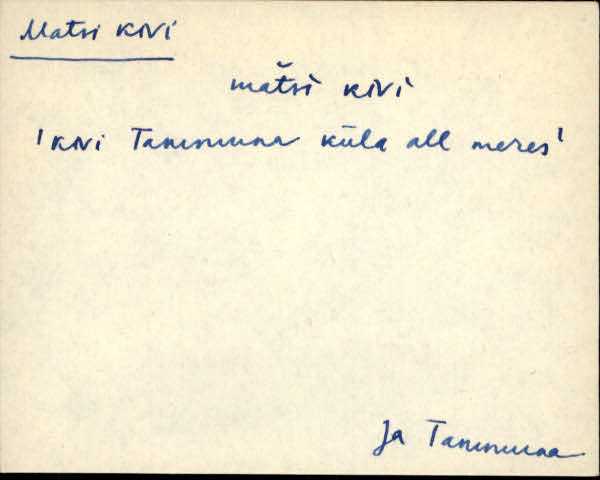 Matsi kivi
mat̆si kivi
'kivi Tammuna küla all meres'
Ja Tammuna